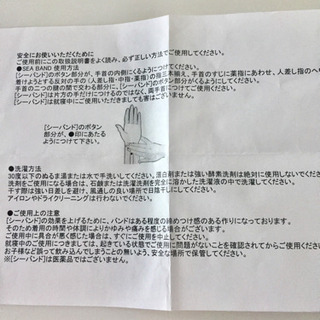 安全にお使いいただくために
ご使用前にこの取扱説明書をよく読み、必ず正しい方法でご使用してください。
●SEA BAND 使用方法
[シーバンド]のボタン部分が、手首の内側にくるようにつけてください。
着けようとする反対の手の(人差し指・中指・薬指)の指三本揃え、手首のすじに薬指にあわせ、人差し指のへり
手首の二つの腱の間で交わる部分に、[シーバンド]のボタン部分がくるようにつけてください。
[シーバンド]は片方の手だけにつけるのではなく、両手首につけてください。
[シーバンド]は就寝中にご使用いただきましても害はございません。
[シーバンド]のボタン
部分が、●印にあたる
ようにつけて下さい。
●洗濯方法
30度以下のぬるま湯または水で手洗いしてください。漂白剤または強い酵素洗剤は絶対に使用しないでください
洗剤をご使用になる場合は、石鹸または洗濯洗剤を完全に溶かした洗濯液の中で洗濯してください。
干す際は強い日差しを避け、風通しの良い場所で日陰干しにしてください。
アイロンやドライクリーニングは行わないでください。
●ご使用上の注意
[シーバンド]の効果を上げるために、バンドはある程度の締めつけ感のある作りになっております。
そのため着用の時間や体調によりかゆみや痛みを感じる場合がございます。
ご使用中に具合が悪く感じた場合は、すぐにご使用を中止してください。
就寝中のご使用につきましては、起きている状態でご使用に問題がないことを確認されてからご使用ください
お子様など誤って飲み込んでしまうことの無いよう、安全な場所で保管してください。
※[シーバンド]は医薬品ではございません。